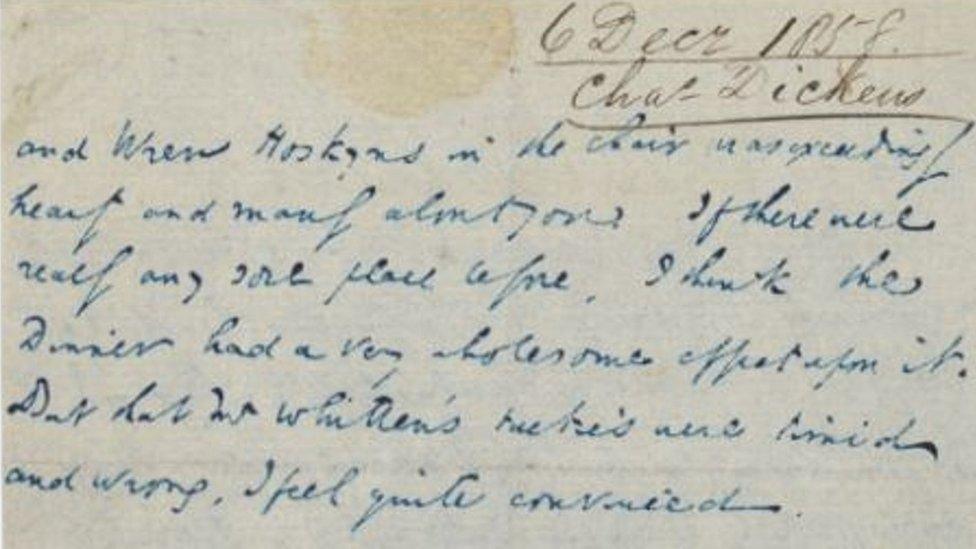 6 Decr 1858.
Chas Dickens
and Wren Hoskyns in the chair was exceedingly
hearty and manly about you. If there were
really any sore place before, I think the
Dinner had a very wholesome effect upon it.
But that Mr Whitten's were timid
and wrong, I feel quite convinced.